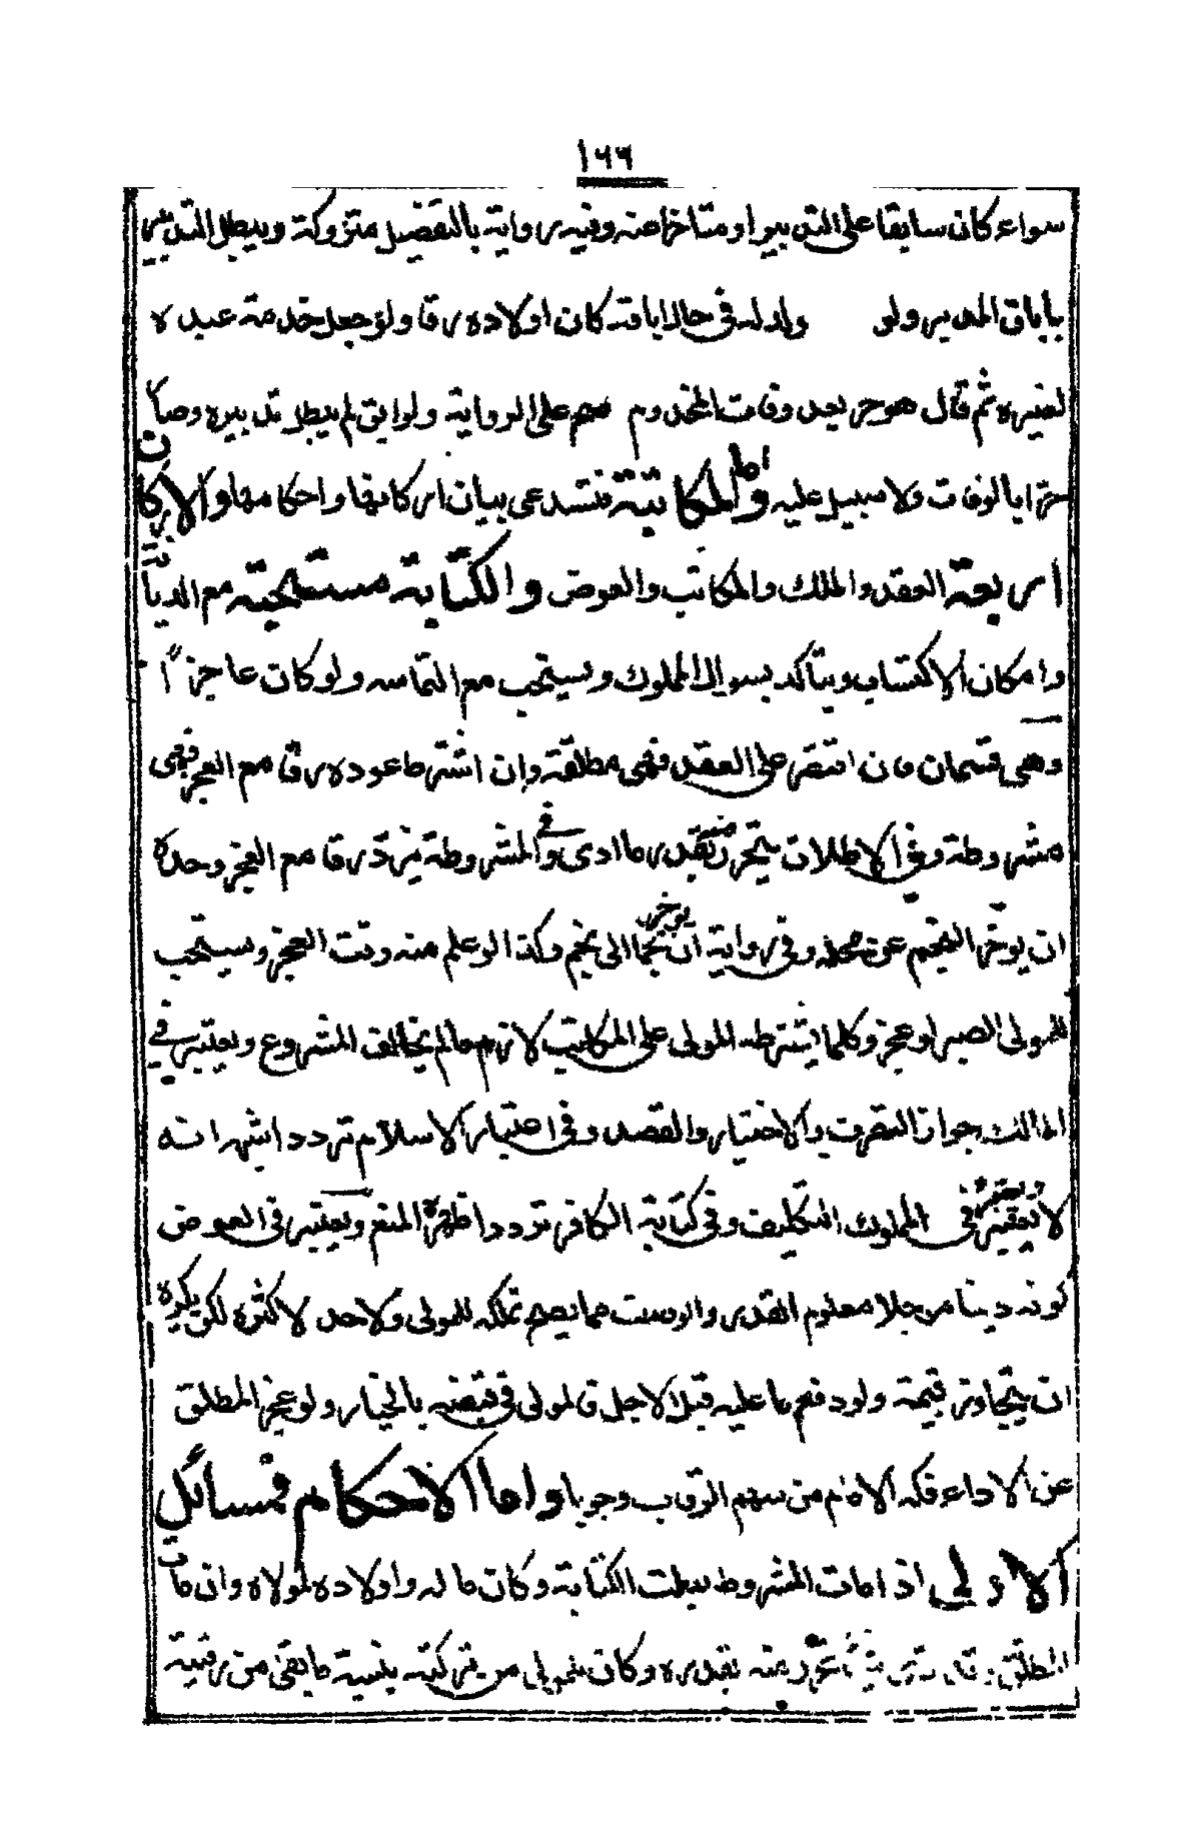 ١٦٦
سواء كان سابقا على التدبير او متاخرا عنه وفيه رواية بالتفصيل متروكة ويبطل التدبير
باباق المدبر ولو ولد له فى حال اباقه كان اولاده رقا ولو جعل خدمة عبده
لغيره ثم قال هو حر بعد وفات المخدوم صح على الرواية ولو ابق لم يبطل تدبيره وصار
حرا بالوفات ولا سبيل عليه واما المكاتبة فتستدعى بيان اركانها واحكامها والاركان
اربعة العقد والملك والمكاتب والعوض والكتابة مستحبة مع الديانة
وامكان الاكتساب ويتاكد بسوال المملوك ويستحب مع التماسه ولو كان عاجزًا
وهى قسمان فان اقتصر على العقد فهى مطلقة وان اشترط عوده رقا مع العجز فهى
مشروطة وفى الاطلاق يتحرر منه بقدر ما ادى وفى المشروطة يرد رقا مع العجز وحده
ان يوخر النجم عن محله وفى رواية ان يوخر نجما الى نجم وكذا لو علم منه وقت العجز ويستحب
للمولى الصبر لو عجز وكلما يشترطه المولى على المكاتب لازم مالم يخالف المشروع ويعتبر فى
المالك جواز التصرف والاختيار والقصد وفى اعتبار الاسلام تردد اشهرانه
لا يعتبر ويعتبر فى المملوك التكليف وفى كتابة الكافر تردد اظهره المنع ويعتبر فى العوض
كونه دينا موجلا معلوم القدر والوصف مما يصح تملكه للمولى ولا حد لاكثره لكن يكره
ان يتجاوز قيمة ولو دفع ما عليه قبل الاجل فالمولى فى قبضه بالخيار ولو عجز المطلق
عن الاداء فكه الامام من سهم الرقاب وجوبا واما الاحكام فمسائل
الاولى اذا مات المشروط بطلت الكتابة وكان ماله واولاده لمولاه وان مات
المطلق وقد ادى شيئا تحرر منه بقدره وكان للمولى من تركته بنسبة ما بقى من رقيته